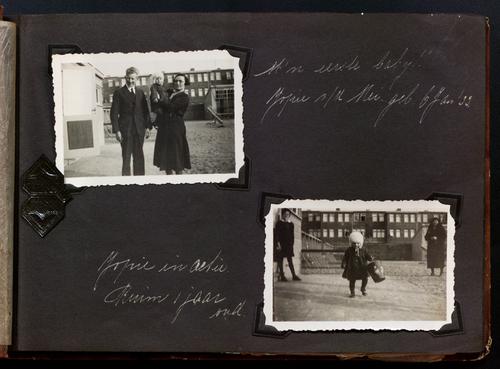 M'n eerste baby!!
Jopie v/d Meu. geb 6 Jan '33
Jopie in actie
Ruim 1 jaar
oud